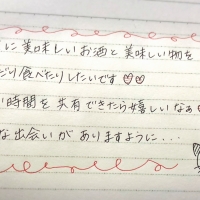 に美味しいお酒と美味しい物を
だり食べたりしたいです♡♡
時間を共有できたら嬉しいなぁ
な出会いがありますように...